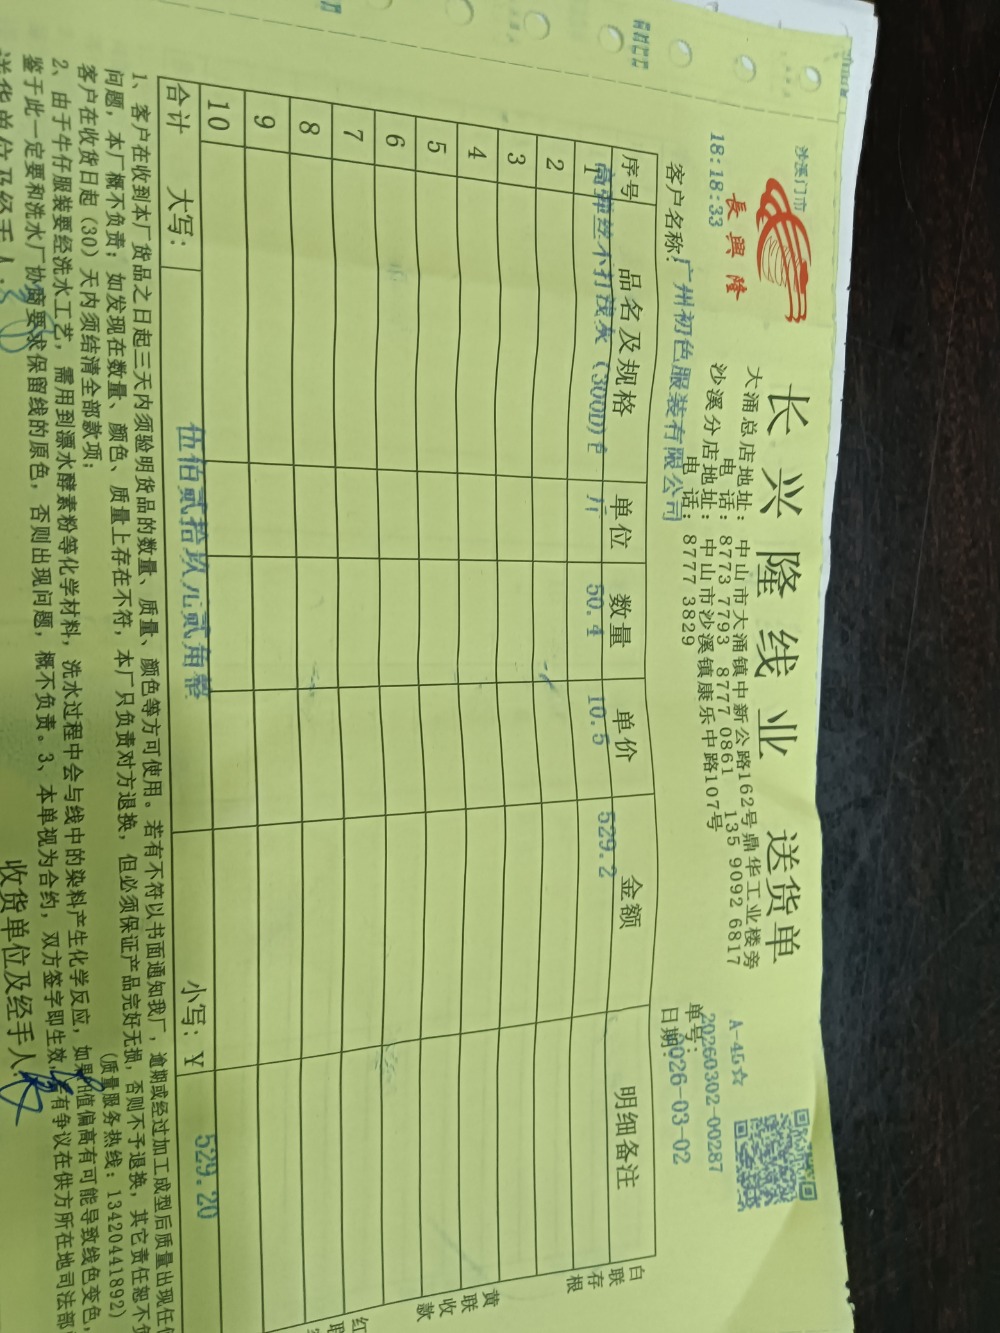 沙溪门市
18:18:33
長興隆
长兴隆线业 送货单
大涌总店地址: 中山市大涌镇中新公路162号鼎华工业楼旁
电 话: 8773 7793 8777 0861 135 9092 6817
沙溪分店地址: 中山市沙溪镇康乐中路107号
电 话: 8777 3829
A-45☆
单号: 20260302-00287
日期: 2026-03-02
客户名称: 广州初色服装有限公司
序号 品名及规格 单位 数量 单价 金额 明细备注
1 (300D) 斤 50.4 10.5 529.2
2
3
4
5
6
7
8
9
10
合计 大写: 伍佰贰拾玖元贰角整 小写: ¥ 529.20
白联存根
黄联收款
1、客户在收到本厂货品之日起三天内须验明货品的数量、质量、颜色等方可使用。若有不符以书面通知我厂,逾期或经过加工成型后质量出现任何
问题,本厂概不负责;如发现在数量、颜色、质量上存在不符,本厂只负责对方退换,但必须保证产品完好无损,否则不予退换,其它责任恕不负
客户在收货日起(30)天内须结清全部款项; (质量服务热线: 13420441892)
2、由于牛仔服装要经洗水工艺,需用到漂水酵素粉等化学材料,洗水过程中会与线中的染料产生化学反应,如果 值偏高有可能导致线色变色,
鉴于此一定要和洗水厂协商要求保留线的原色,否则出现问题,概不负责。3、本单视为合约,双方签字即生效, 有争议在供方所在地司法部
送货单位及经手人: 收货单位及经手人: